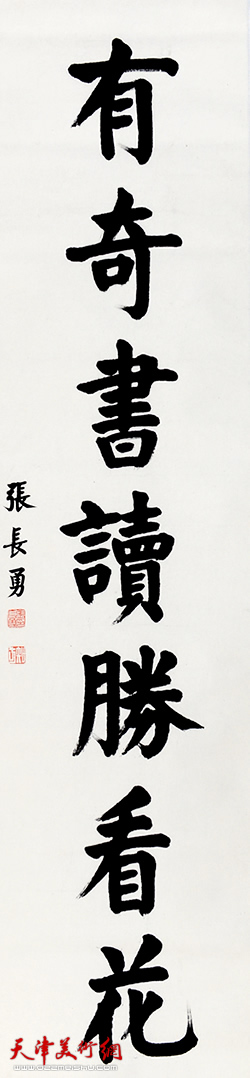 有奇書讀勝看花
張長勇
天津美術網